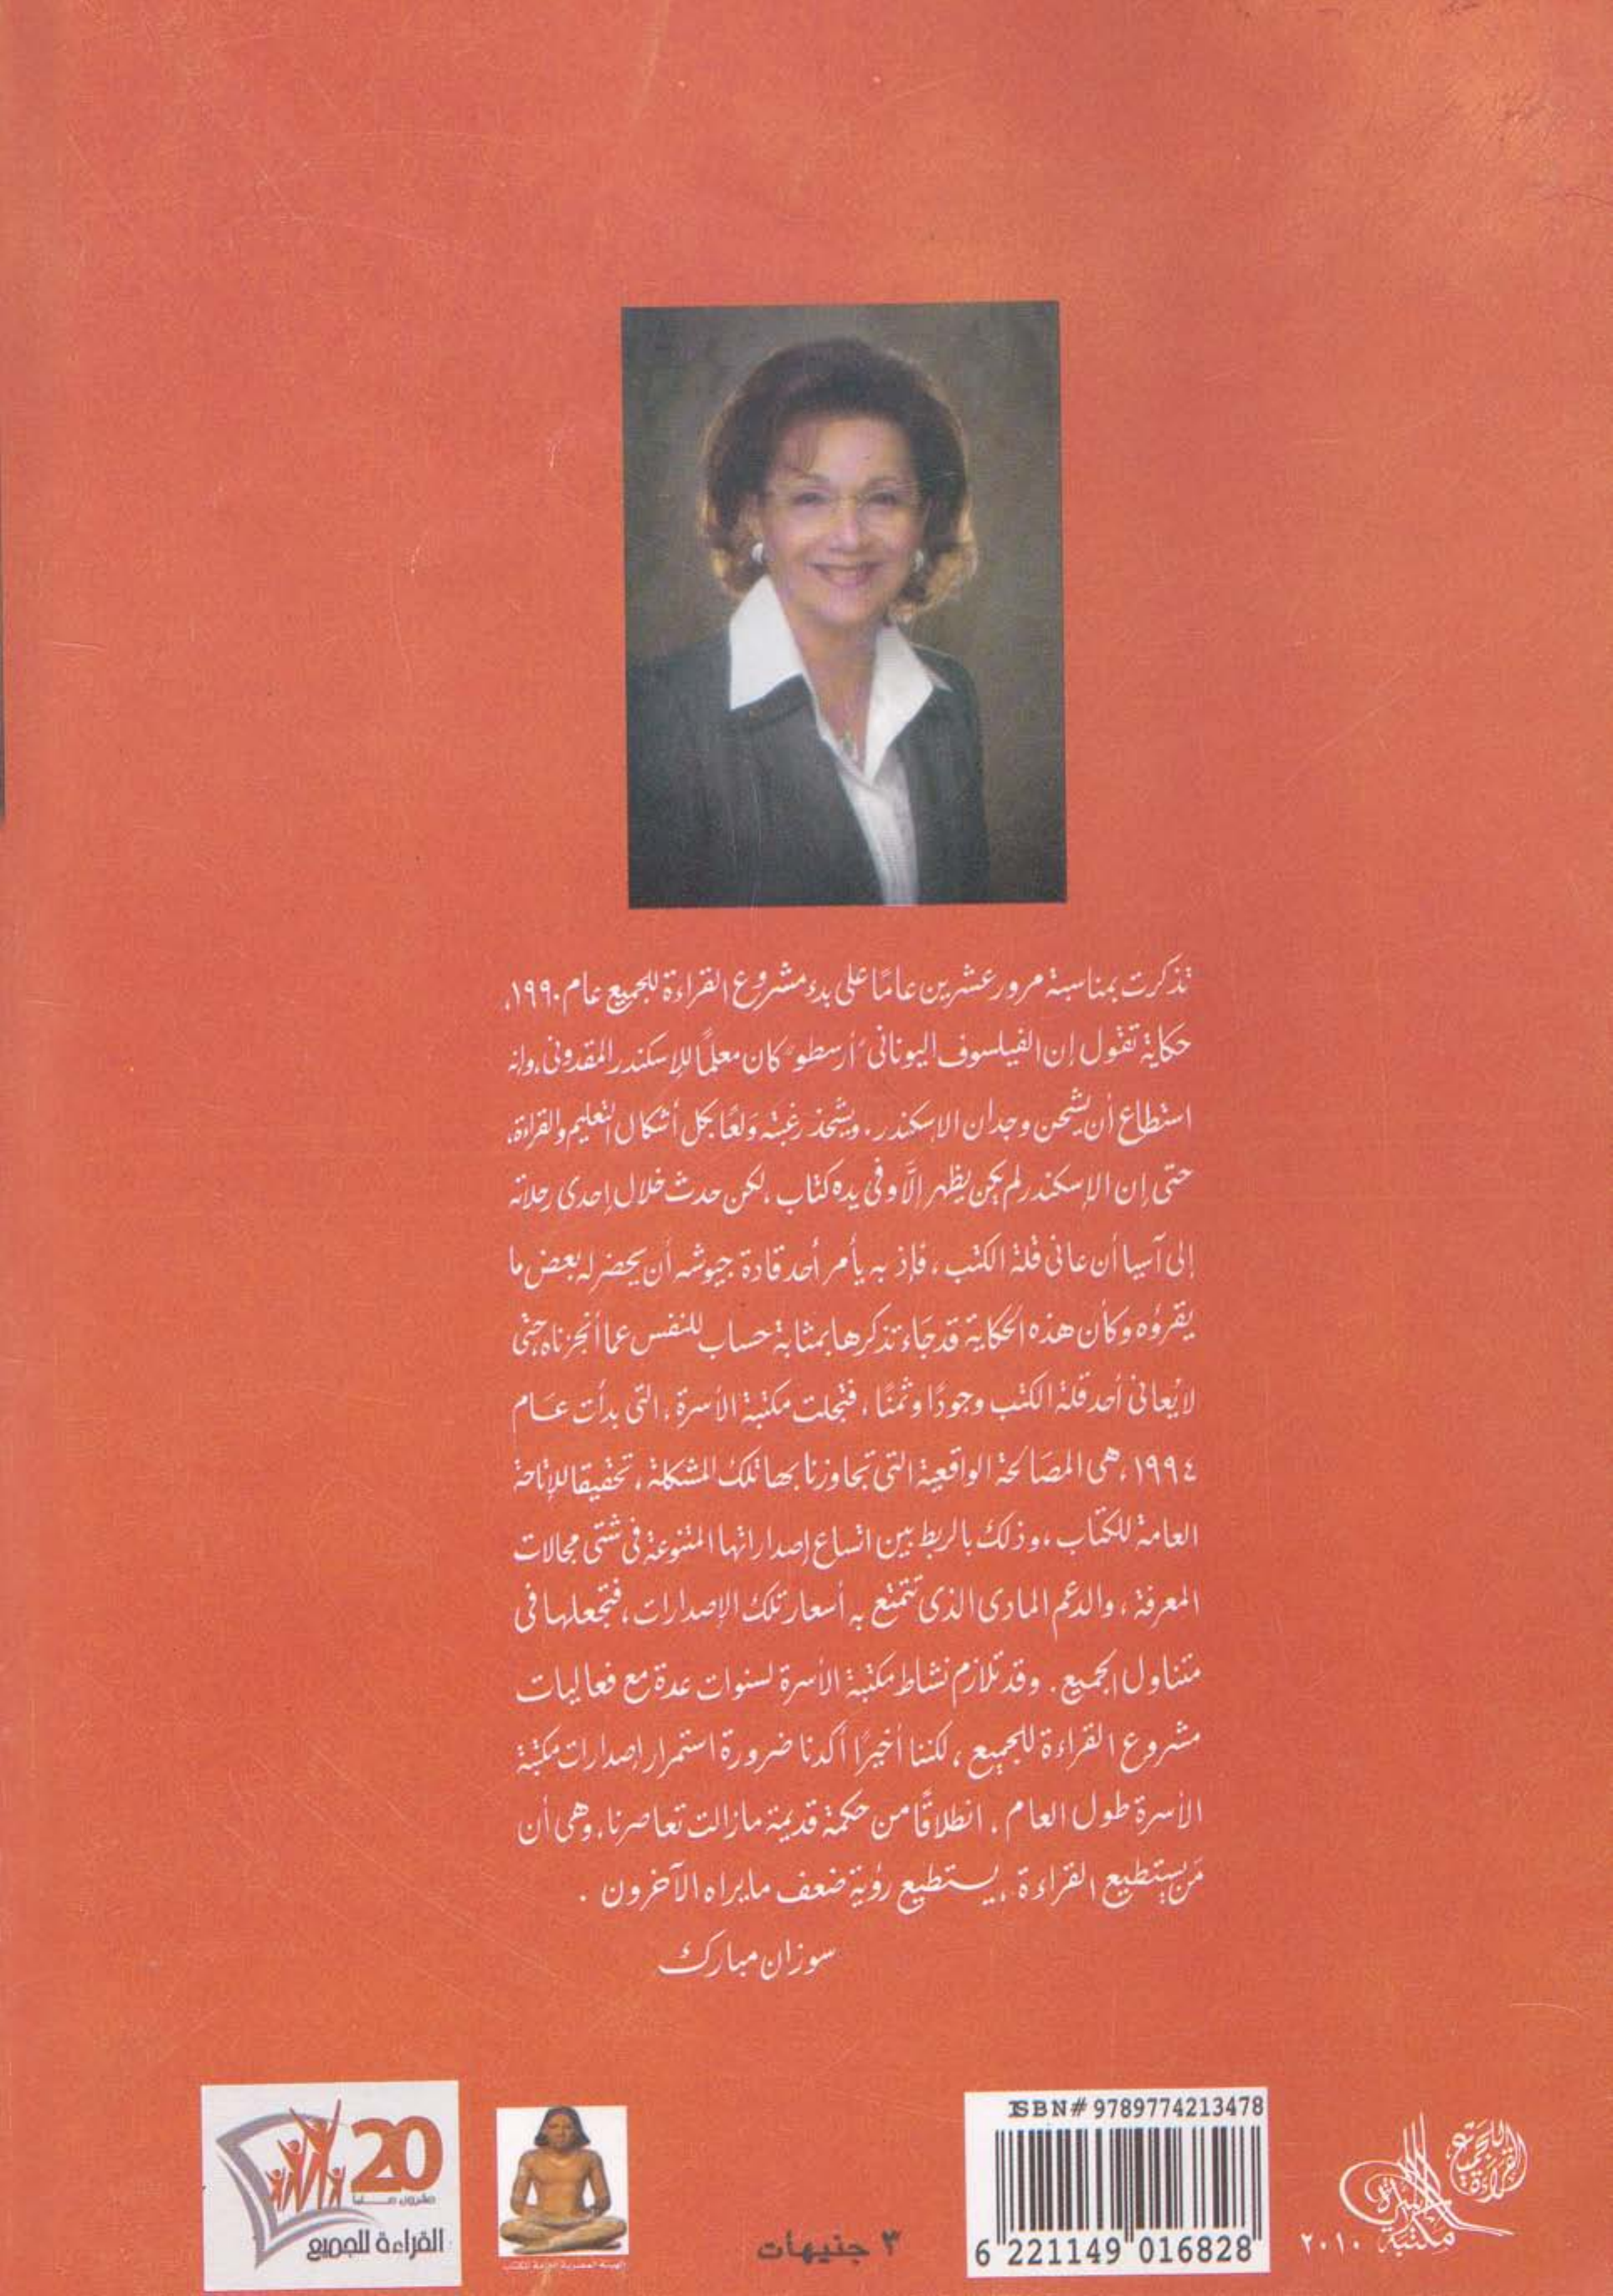 تذكرت بمناسبة مرور عشرين عامًا على بدء مشروع القراءة للجميع عام ١٩٩٠،
حكاية تقول إن الفيلسوف اليونانى "أرسطو" كان معلمًا للإسكندر المقدونى، وانه
استطاع أن يشحن وجدان الاسكندر، ويشحذ رغبته ولعًا بكل أشكال التعليم والقراءة،
حتى إن الإسكندر لم يكن يظهر إلَّا وفى يده كتاب، لكن حدث خلال إحدى رحلاته
إلى آسيا أن عانى قلة الكتب، فإذ به يأمر أحد قادة جيوشه أن يحضر له بعض ما
يقرؤه وكأن هذه الحكاية قد جاء تذكرها بمثابة حساب للنفس عما أنجزناه حتى
لا يُعانى أحد قلة الكتب وجودًا وثمنًا، فتجلت مكتبة الأسرة، التى بدأت عام
١٩٩٤، هى المصالحة الواقعية التى تجاوزنا بها تلك المشكلة، تحقيقا للإتاحة
العامة للكتاب، وذلك بالربط بين اتساع إصداراتها المتنوعة فى شتى مجالات
المعرفة، والدعم المادى الذى تتمتع به أسعار تلك الإصدارات، فتجعلها فى
متناول الجميع. وقد تلازم نشاط مكتبة الأسرة لسنوات عدة مع فعاليات
مشروع القراءة للجميع، لكننا أخيرًا أكدنا ضرورة استمرار إصدارات مكتبة
الأسرة طول العام، انطلاقًا من حكمة قديمة مازالت تعاصرنا، وهى أن
مَن يستطيع القراءة، يستطيع رؤية ضعف مايراه الآخرون.
سوزان مبارك
20
عشرون عاما
القراءة للجميع
الهيئة المصرية العامة للكتاب
٣ جنيهات
ISBN# 9789774213478
6 221149 016828
القراءة للجميع
مكتبة الأسرة
٢٠١٠